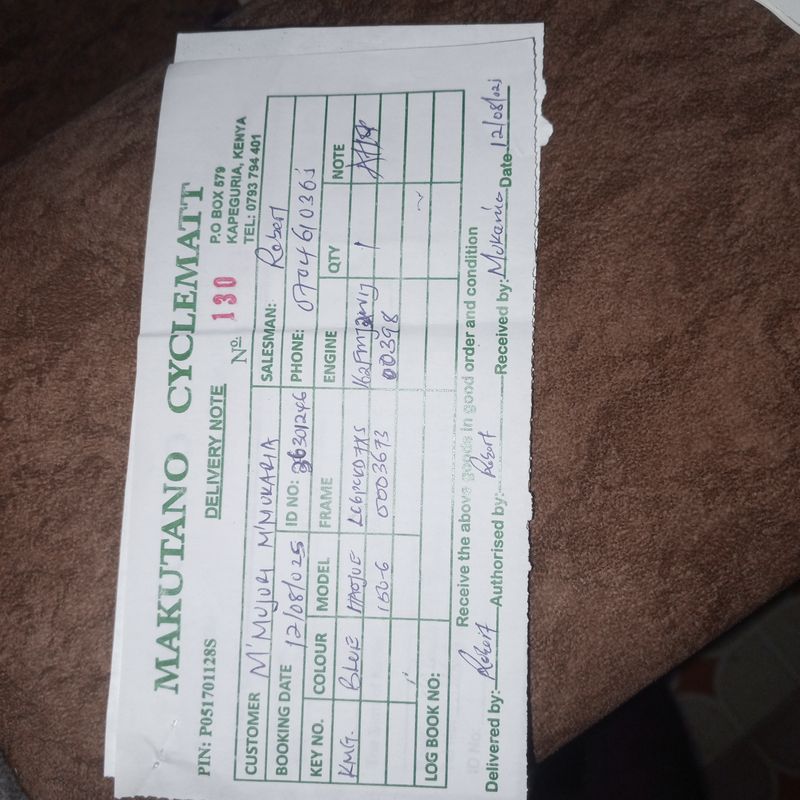 MAKUTANO CYCLEMATT
PIN: P051701128S
DELIVERY NOTE
P.O BOX 579
KAPEGURIA, KENYA
TEL: 0793 794 401
Nº 130
CUSTOMER M'MUJURI M'MUKARIA SALESMAN: Robert
BOOKING DATE 12/08/025 ID NO: 26301246 PHONE: 0704610365
KEY NO. COLOUR MODEL FRAME ENGINE QTY NOTE
KMG. BLUE HAOJUE 1
150-6 0003673 00398
LOG BOOK NO:
Receive the above goods in good order and condition
Delivered by: Robert Authorised by: Robert Received by: Mukaria Date 12/08/025